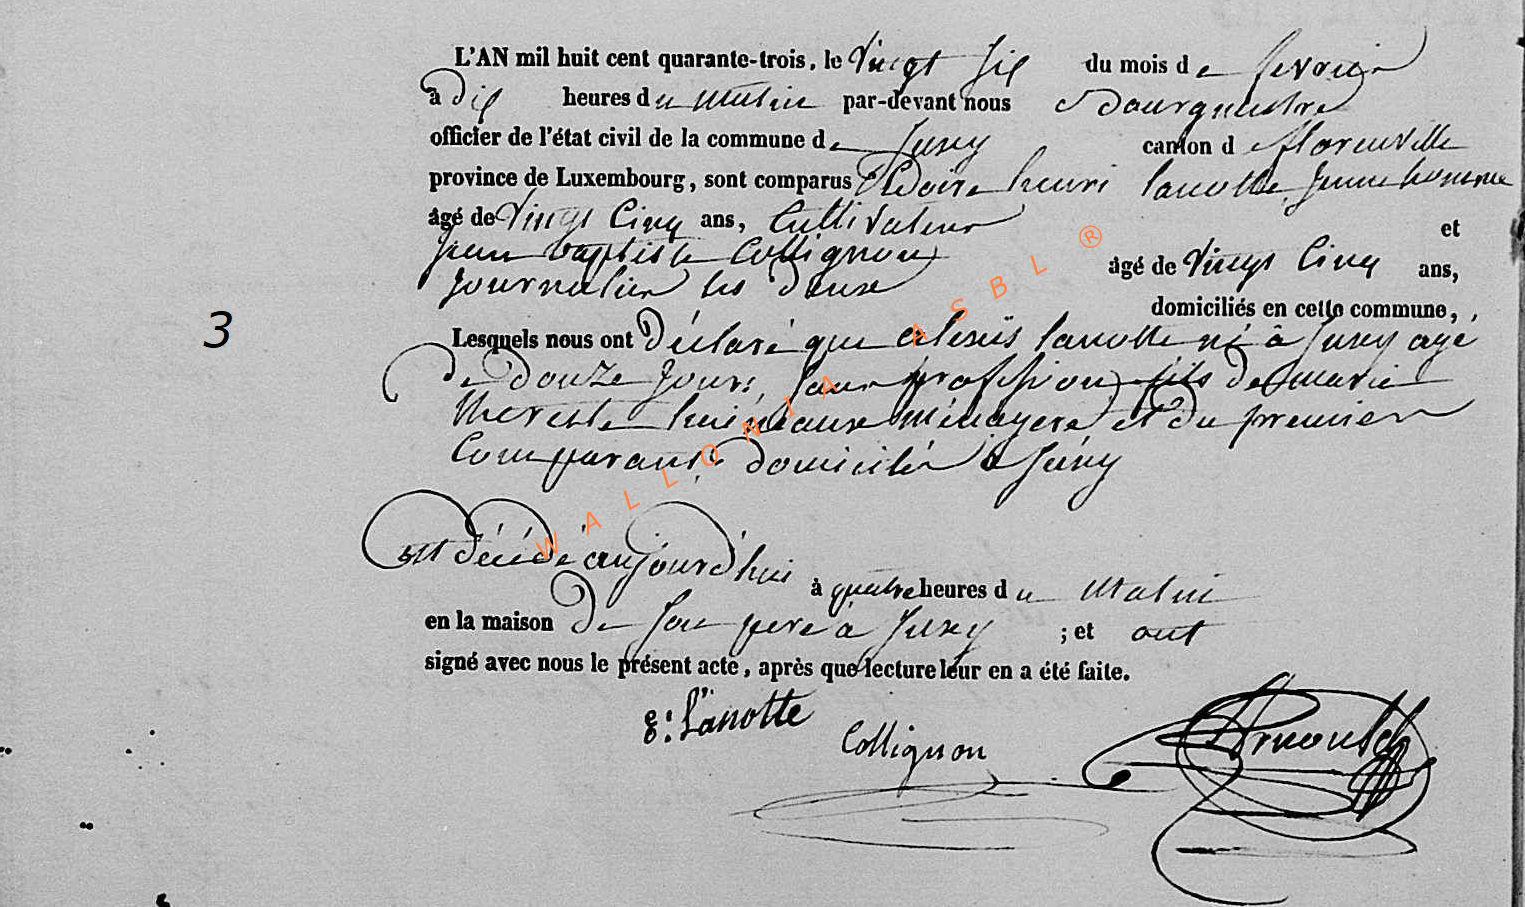 L'AN mil huit cent quarante-trois, le vingt six du mois de fevrier
à dix heures du matin par-devant nous Bourgmestre
officier de l'état civil de la commune de Jusey canton de florenville
province de Luxembourg, sont comparus henri lanotte jeune homme
âgé de vingt cinq ans, Cultivateur et
jean baptiste Collignon âgé de vingt cinq ans,
journalier les deux domiciliés en cette commune,
3
Lesquels nous ont déclaré que lanotte né à Jusey agé
de douze jours, sans profession fils de marie
therese menagere et du premier
Comparant domicilié à Jusey
est décédé aujourd'hui à quatre heures du matin
en la maison de son pere à Jusey ; et ont
signé avec nous le présent acte, après que lecture leur en a été faite.
E: Lanotte
Collignon
Arnould
WALLONIA ASBL ®